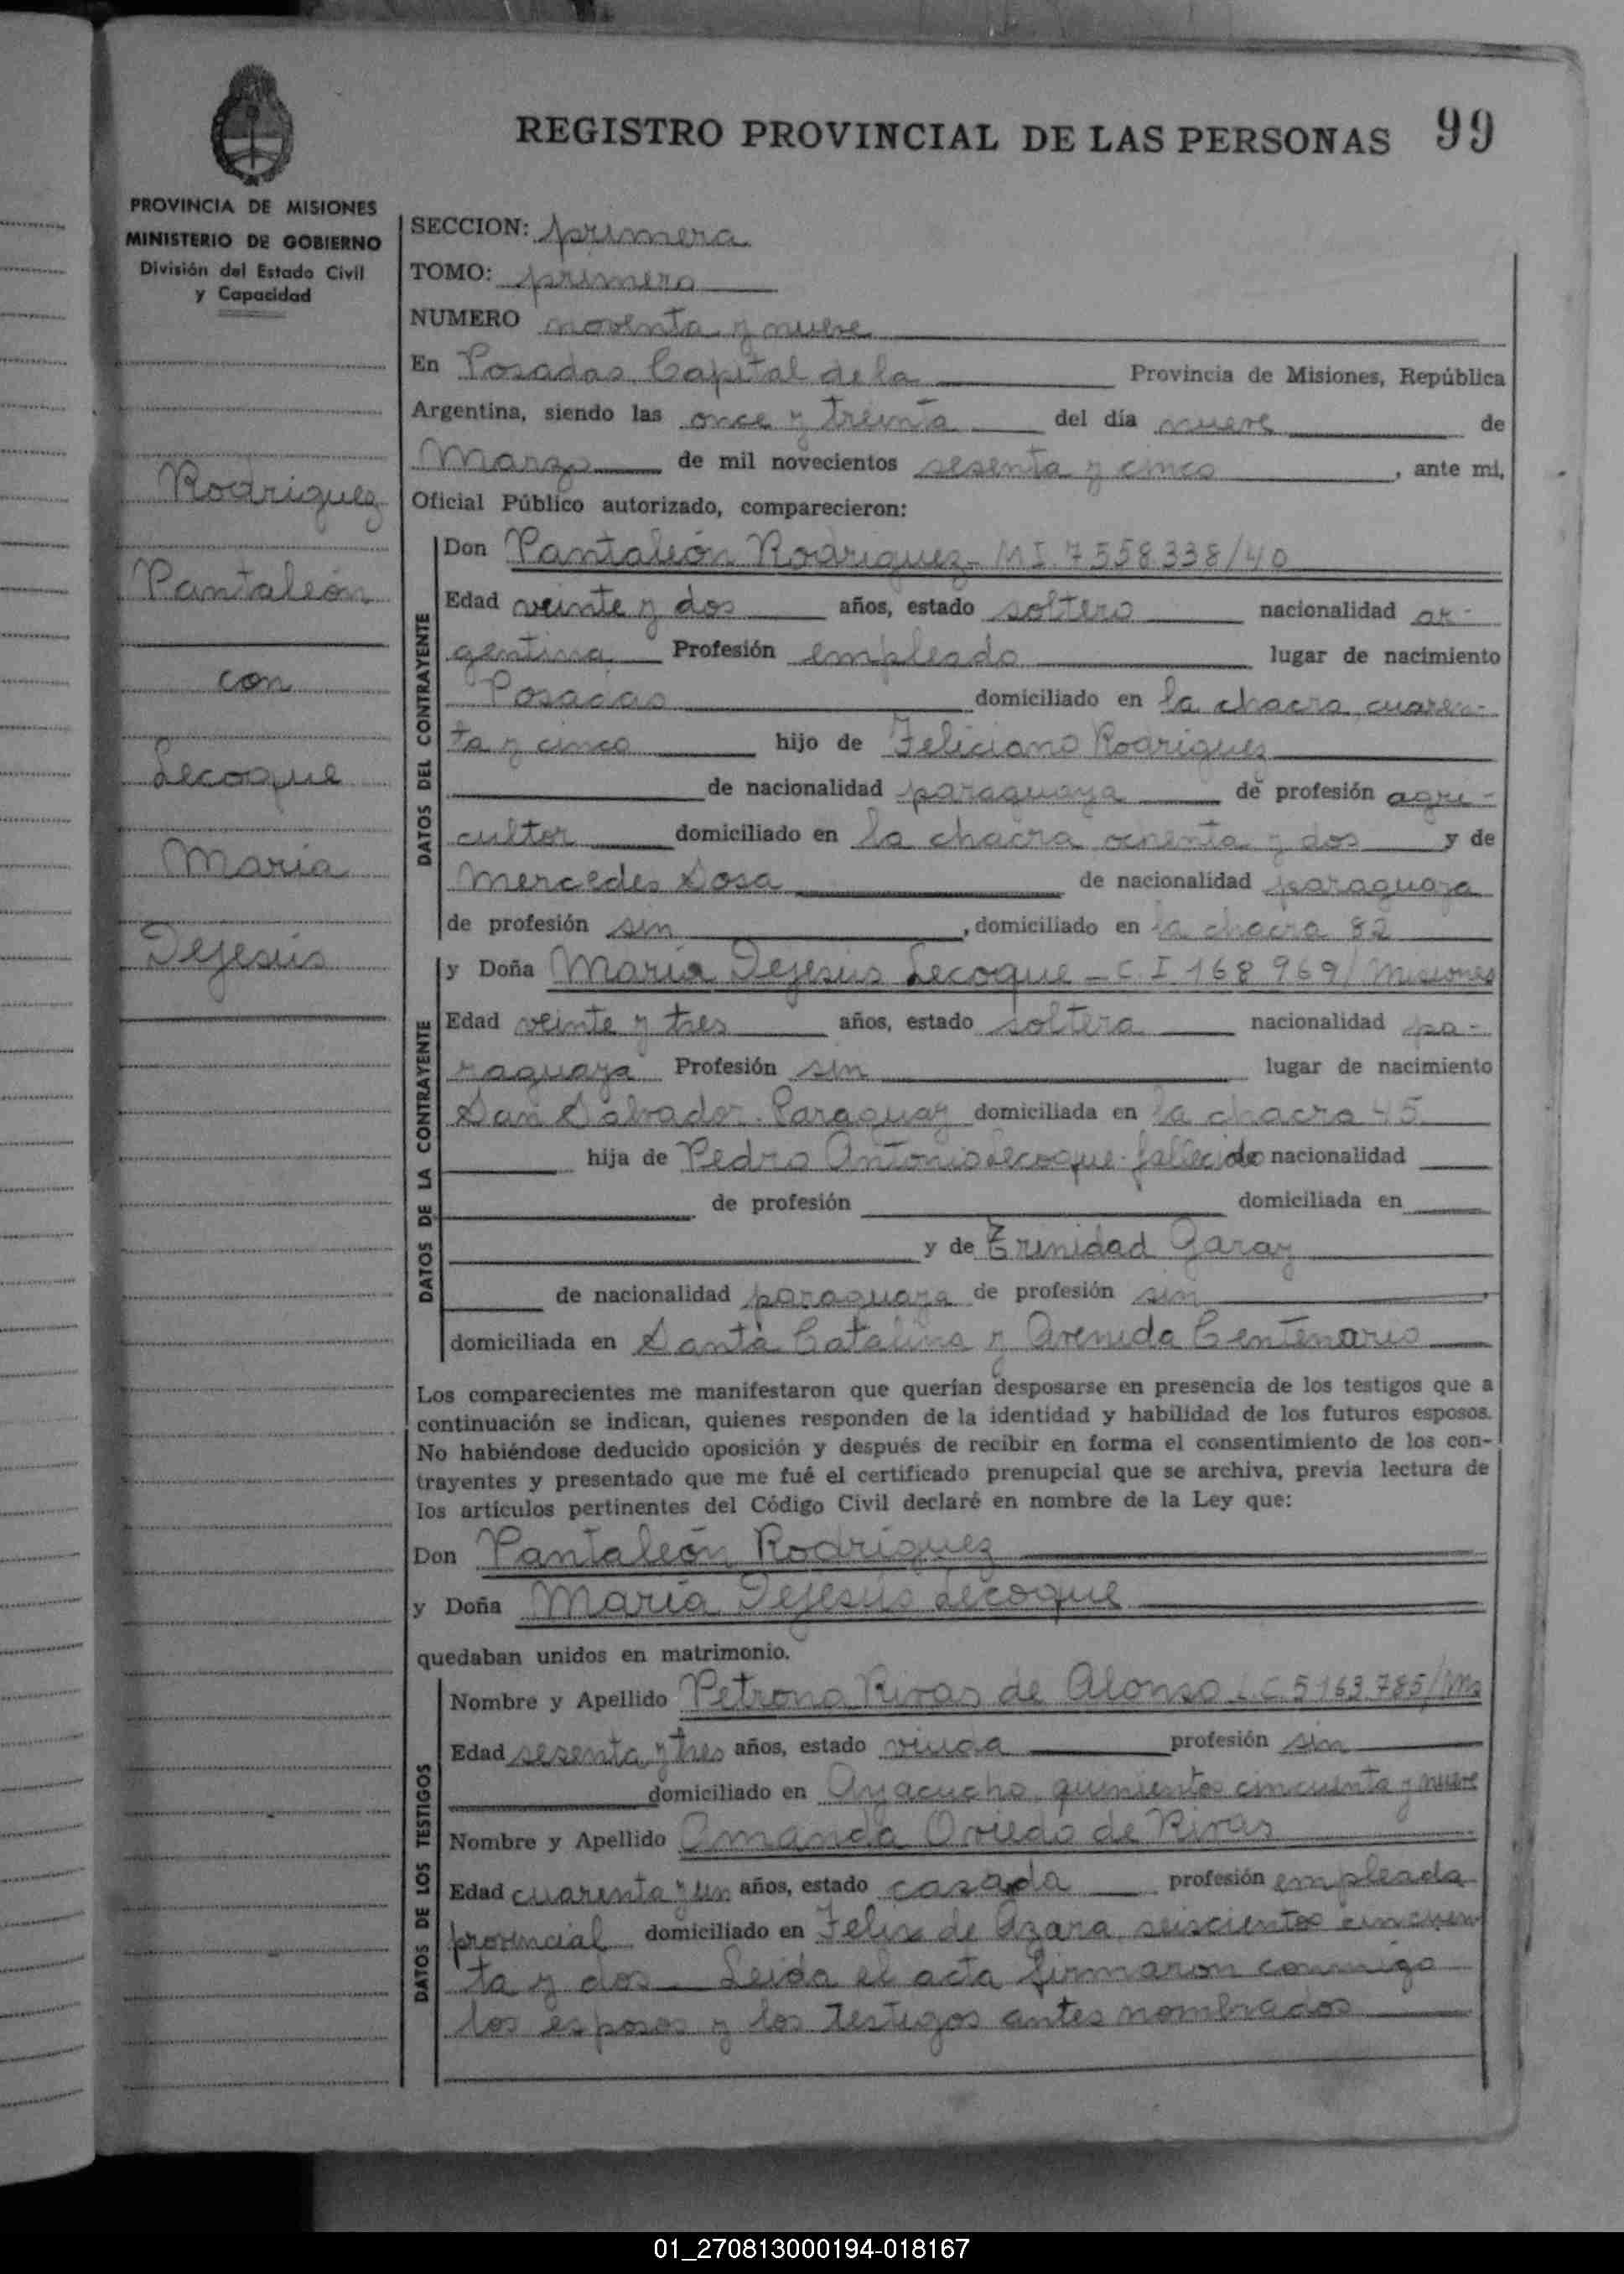 REGISTRO PROVINCIAL DE LAS PERSONAS 99
PROVINCIA DE MISIONES
MINISTERIO DE GOBIERNO
División del Estado Civil
y Capacidad
Rodriguez
Pantaleón
con
Lecoque
María
Dejesús
SECCION: primera
TOMO: primero
NUMERO noventa y nueve
En Posadas Capital de la Provincia de Misiones, República
Argentina, siendo las once y treinta del día nueve de
Marzo de mil novecientos sesenta y cinco, ante mi,
Oficial Público autorizado, comparecieron:
DATOS DEL CONTRAYENTE
Don Pantaleón Rodriguez - MI. 7558338/40
Edad veinte y dos años, estado soltero nacionalidad ar-
gentina Profesión empleado lugar de nacimiento
Posadas domiciliado en la chacra cuaren-
ta y cinco hijo de Feliciano Rodriguez
de nacionalidad paraguaya de profesión agri-
cultor domiciliado en la chacra ochenta y dos y de
Mercedes Sosa de nacionalidad paraguaya
de profesión sin, domiciliado en la chacra 82
DATOS DE LA CONTRAYENTE
y Doña María Dejesús Lecoque - C. I 168.969/Misiones
Edad veinte y tres años, estado soltera nacionalidad pa-
raguaya Profesión sin lugar de nacimiento
San Salvador - Paraguay domiciliada en la chacra 45
hija de Pedro Antonio Lecoque - fallecido de nacionalidad
de profesión domiciliada en
y de Trinidad Garay
de nacionalidad paraguaya de profesión sin
domiciliada en Santa Catalina y Avenida Centenario
Los comparecientes me manifestaron que querían desposarse en presencia de los testigos que a
continuación se indican, quienes responden de la identidad y habilidad de los futuros esposos.
No habiéndose deducido oposición y después de recibir en forma el consentimiento de los con-
trayentes y presentado que me fué el certificado prenupcial que se archiva, previa lectura de
los artículos pertinentes del Código Civil declaré en nombre de la Ley que:
Don Pantaleón Rodríguez
y Doña María Dejesús Lecoque
quedaban unidos en matrimonio.
DATOS DE LOS TESTIGOS
Nombre y Apellido Petrona Rivas de Alonso L.C 5.163.785/Ms
Edad sesenta y tres años, estado viuda profesión sin
domiciliado en Ayacucho quinientos cincuenta y nueve
Nombre y Apellido Amanda Oviedo de Rivas
Edad cuarenta y un años, estado casada profesión empleada
provincial domiciliado en Felix de Azara seiscientos cincuen
ta y dos. Leida el acta firmaron conmigo
los esposos y los testigos antes nombrados
01_270813000194-018167